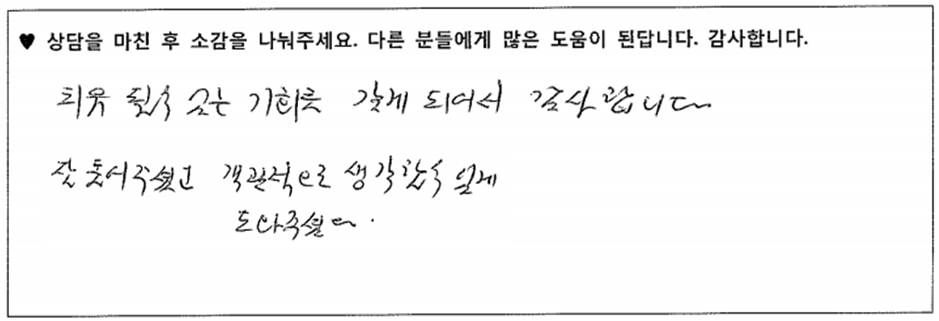 ♥ 상담을 마친 후 소감을 나눠주세요. 다른 분들에게 많은 도움이 된답니다. 감사합니다.
치유 될수 있는 기회를 갖게 되어서 감사합니다
잘 들어주셨고 객관적으로 생각할수 있게
도와주셨다.